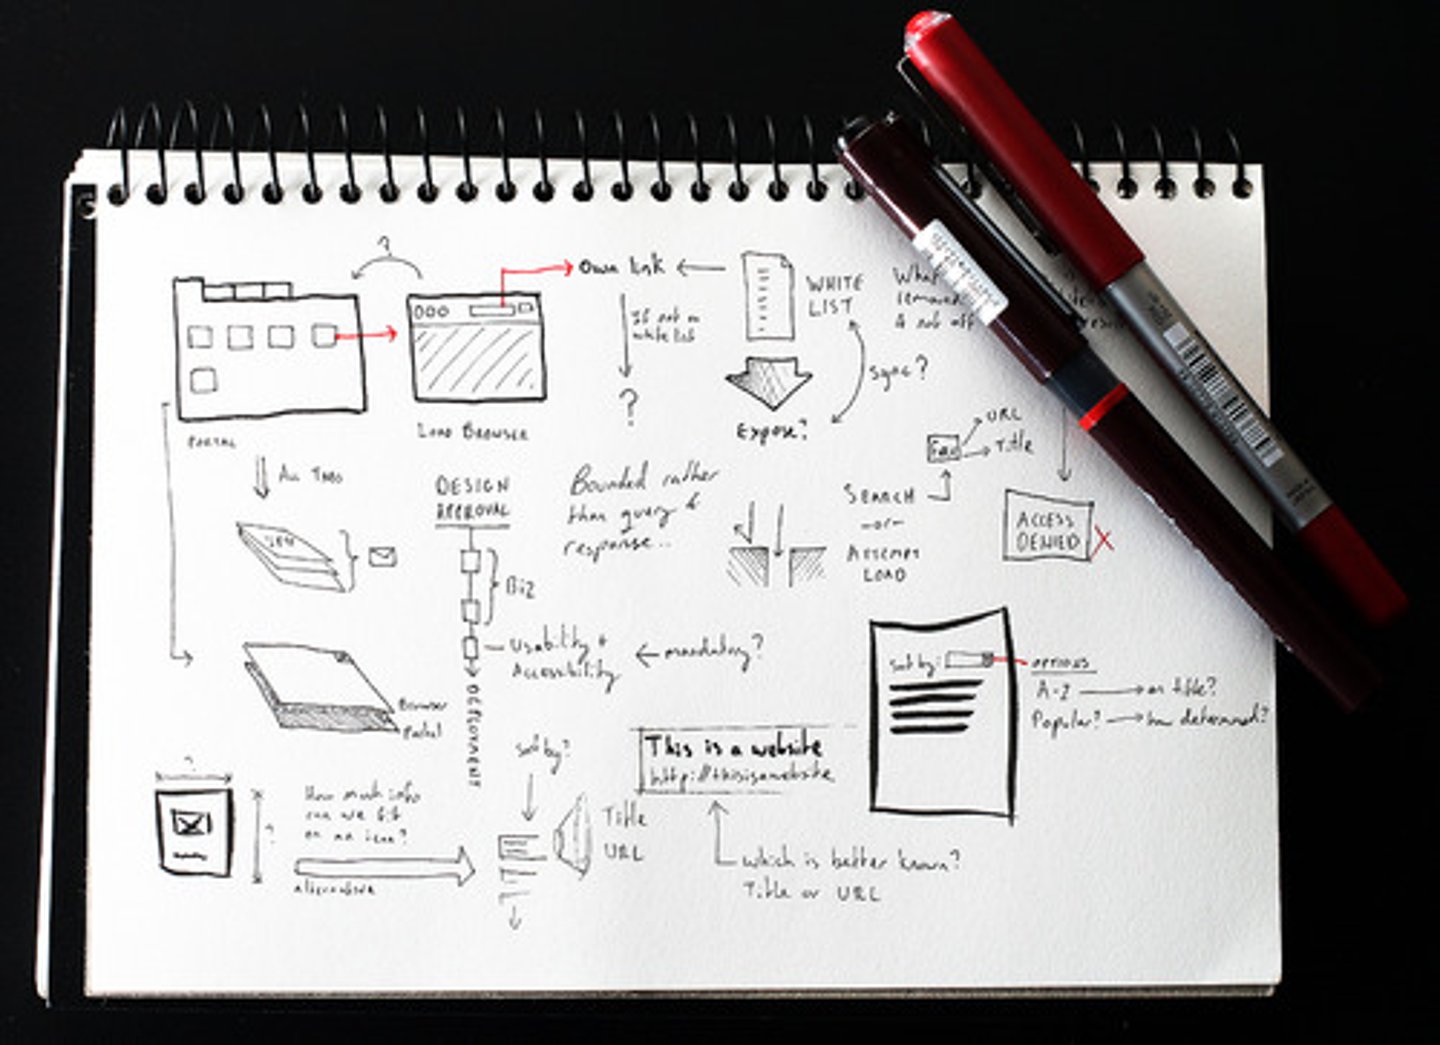 ?
Own link
WHITE
LIST
If not on
white list
?
Sync?
PORTAL
LOAD BROWSER
Expose?
URL
Title
ALL TABS
DESIGN
APPROVAL
Bounded rather
than query &
response...
SEARCH
-or-
ATTEMPT
LOAD
ACCESS
DENIED
BIZ
Usability +
Accessibility
mandatory?
Browser
Portal
sort by:
OPTIONS
A-Z
on title?
Popular?
how determined?
sort by?
This is a website
http://thisisawebsite
?
?
How much info
can we fit
on an icon?
alternative
Title
URL
which is better known?
Title or URL